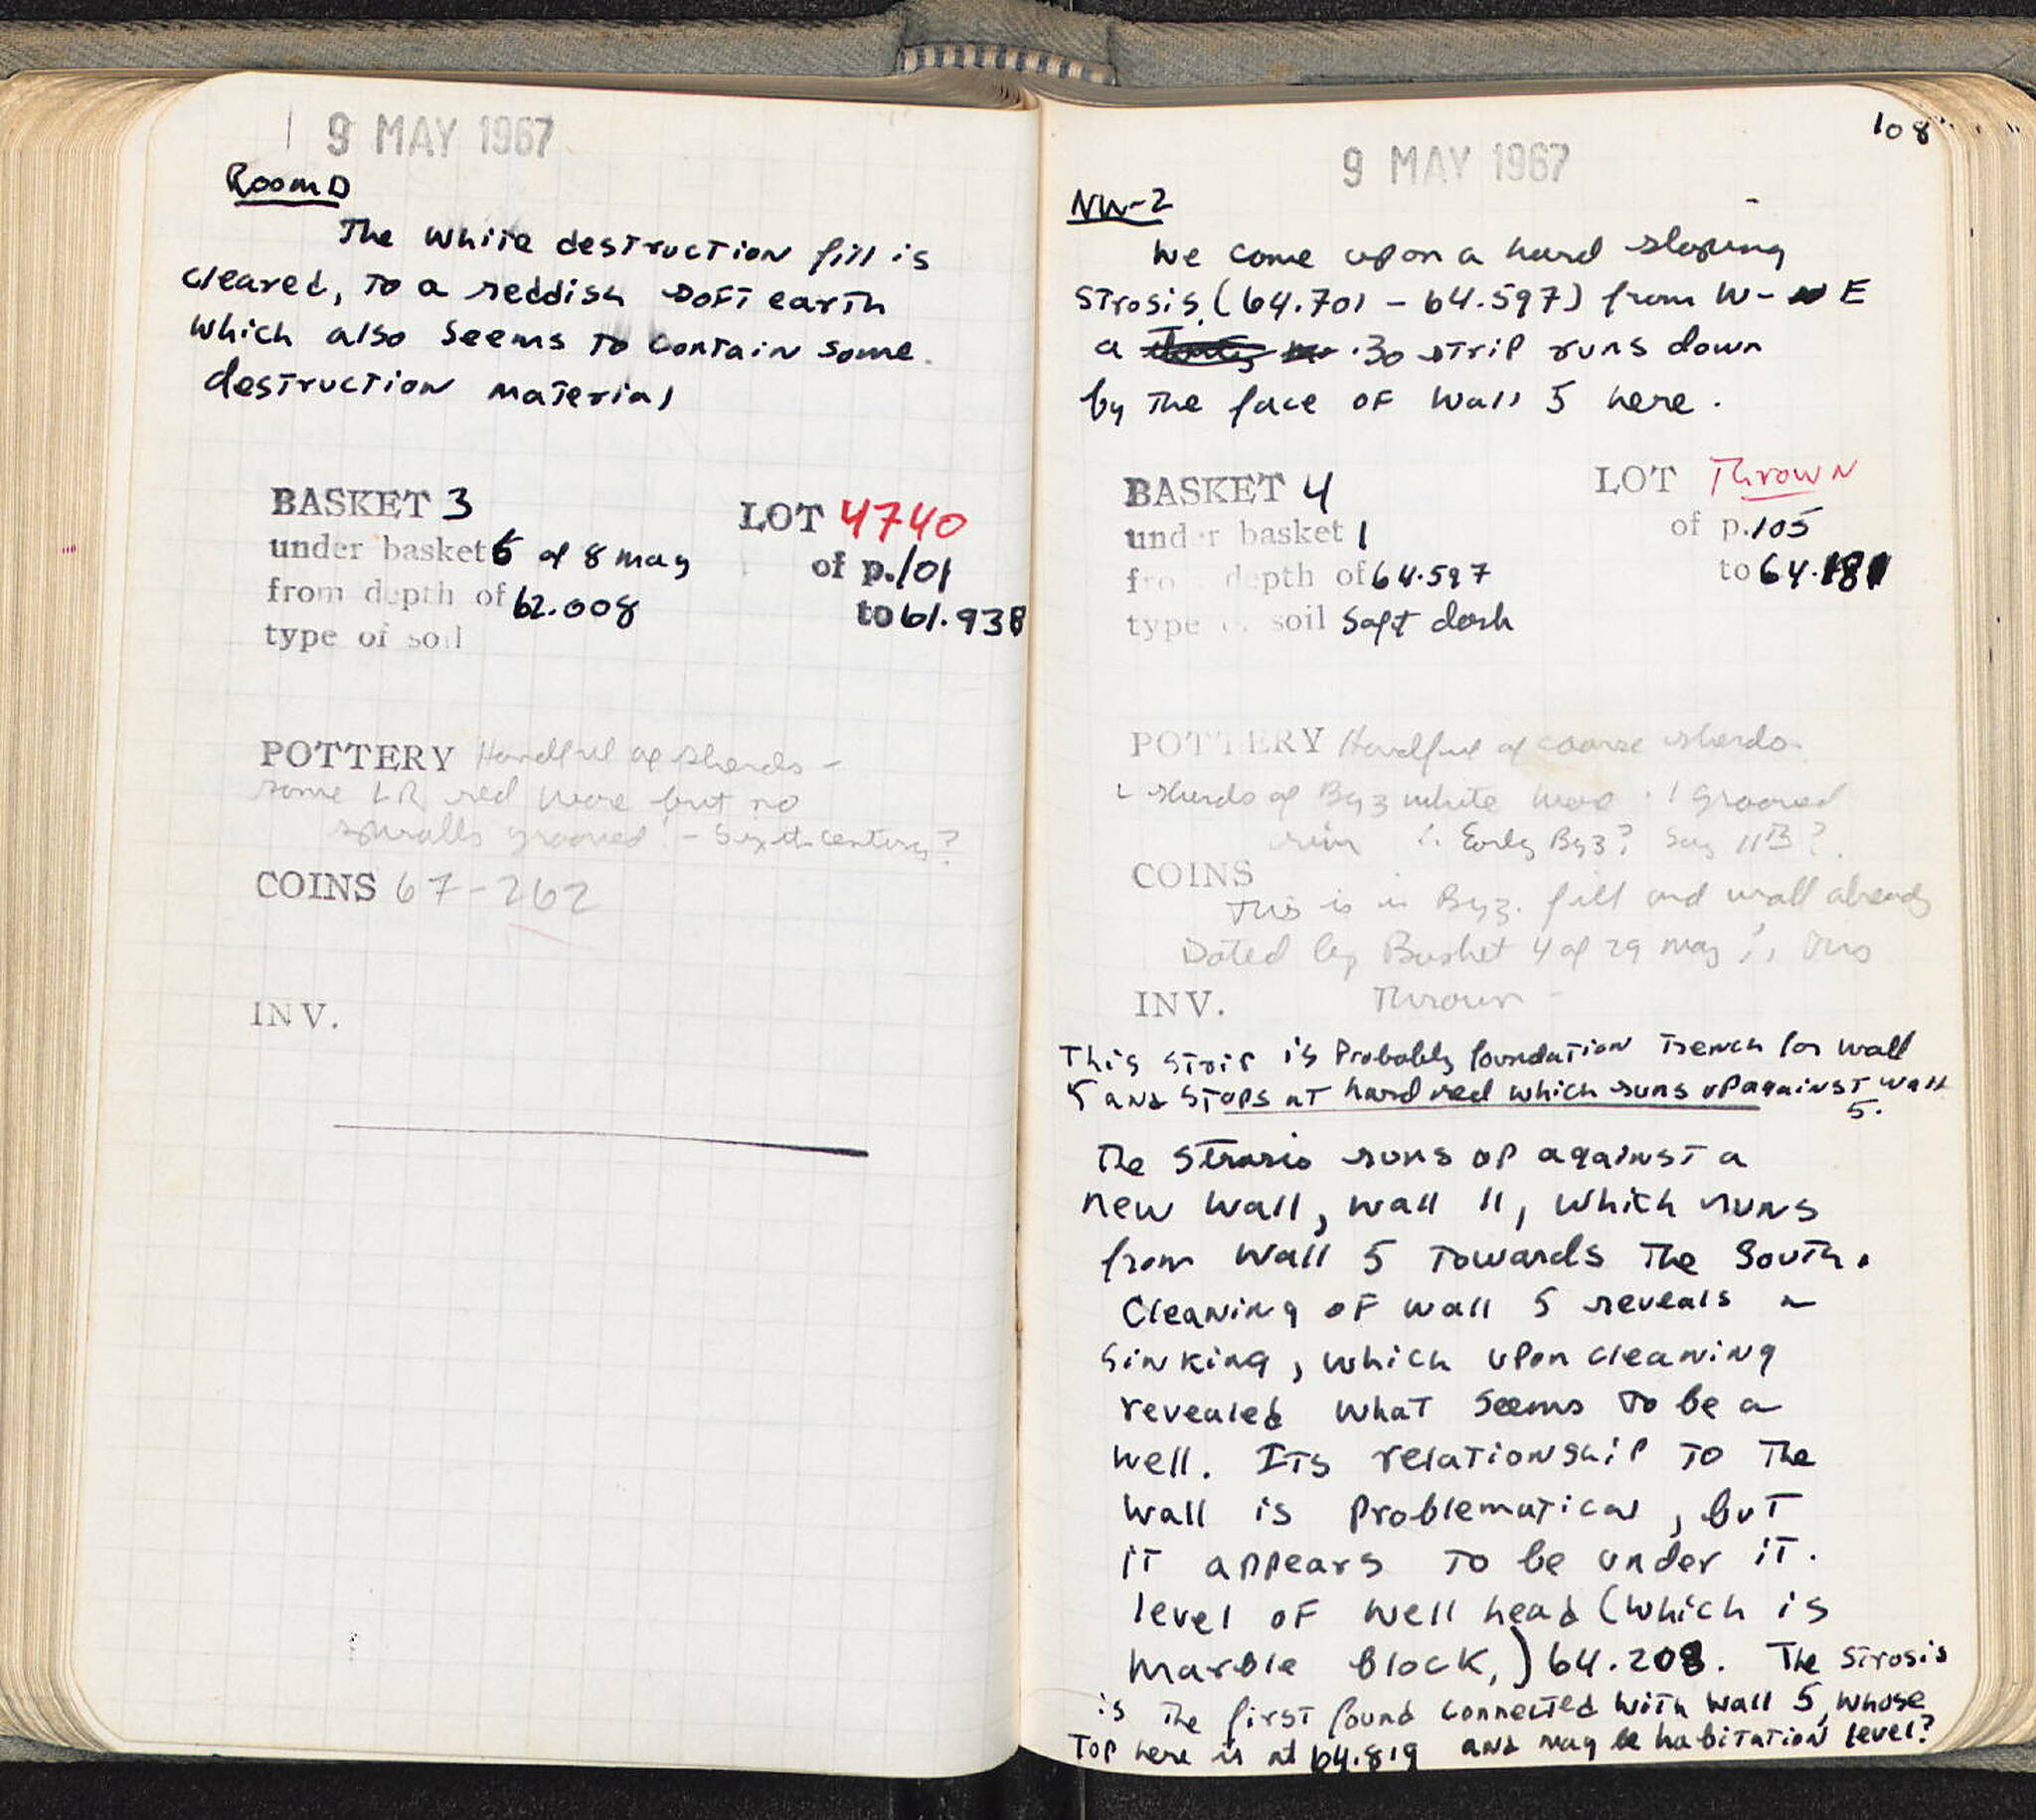 9 MAY 1967
Room D
The white destruction fill is
cleared, to a reddish soft earth
which also seems to contain some
destruction material
BASKET 3 LOT 4740
under basket 6 of 8 May of p. 101
from depth of 62.008 to 61.938
type of soil
POTTERY Handful of sherds -
some LR red ware but no
spiralls grooved! - Sixth century?
COINS 67-262
INV.
108
9 MAY 1967
NW-2
We come upon a hard sloping
strosis (64.701 - 64.597) from W- E
a .30 strip runs down
by the face of wall 5 here.
BASKET 4 LOT Thrown
under basket 1 of p. 105
from depth of 64.597 to 64.181
type of soil Soft dark
POTTERY Handful of coarse sherds.
2 sherds of Byz white ware. 1 grooved
rim ∴ Early Byz? Say 11th?
COINS
This is in Byz. fill and wall already
Dated by Basket 4 of 29 May ∴ this
INV. Thrown -
This strip is probably foundation trench for wall
5 and stops at hard red which runs up against wall
5.
The strosis runs up against a
new wall, wall 11, which runs
from wall 5 towards the South.
Cleaning of wall 5 reveals a
sinking, which upon cleaning
revealed what seems to be a
well. Its relationship to the
wall is problematical, but
it appears to be under it.
level of well head (which is
marble block,) 64.208. The strosis
is the first found connected with wall 5, whose
top here is at 64.819 and may be habitation level?